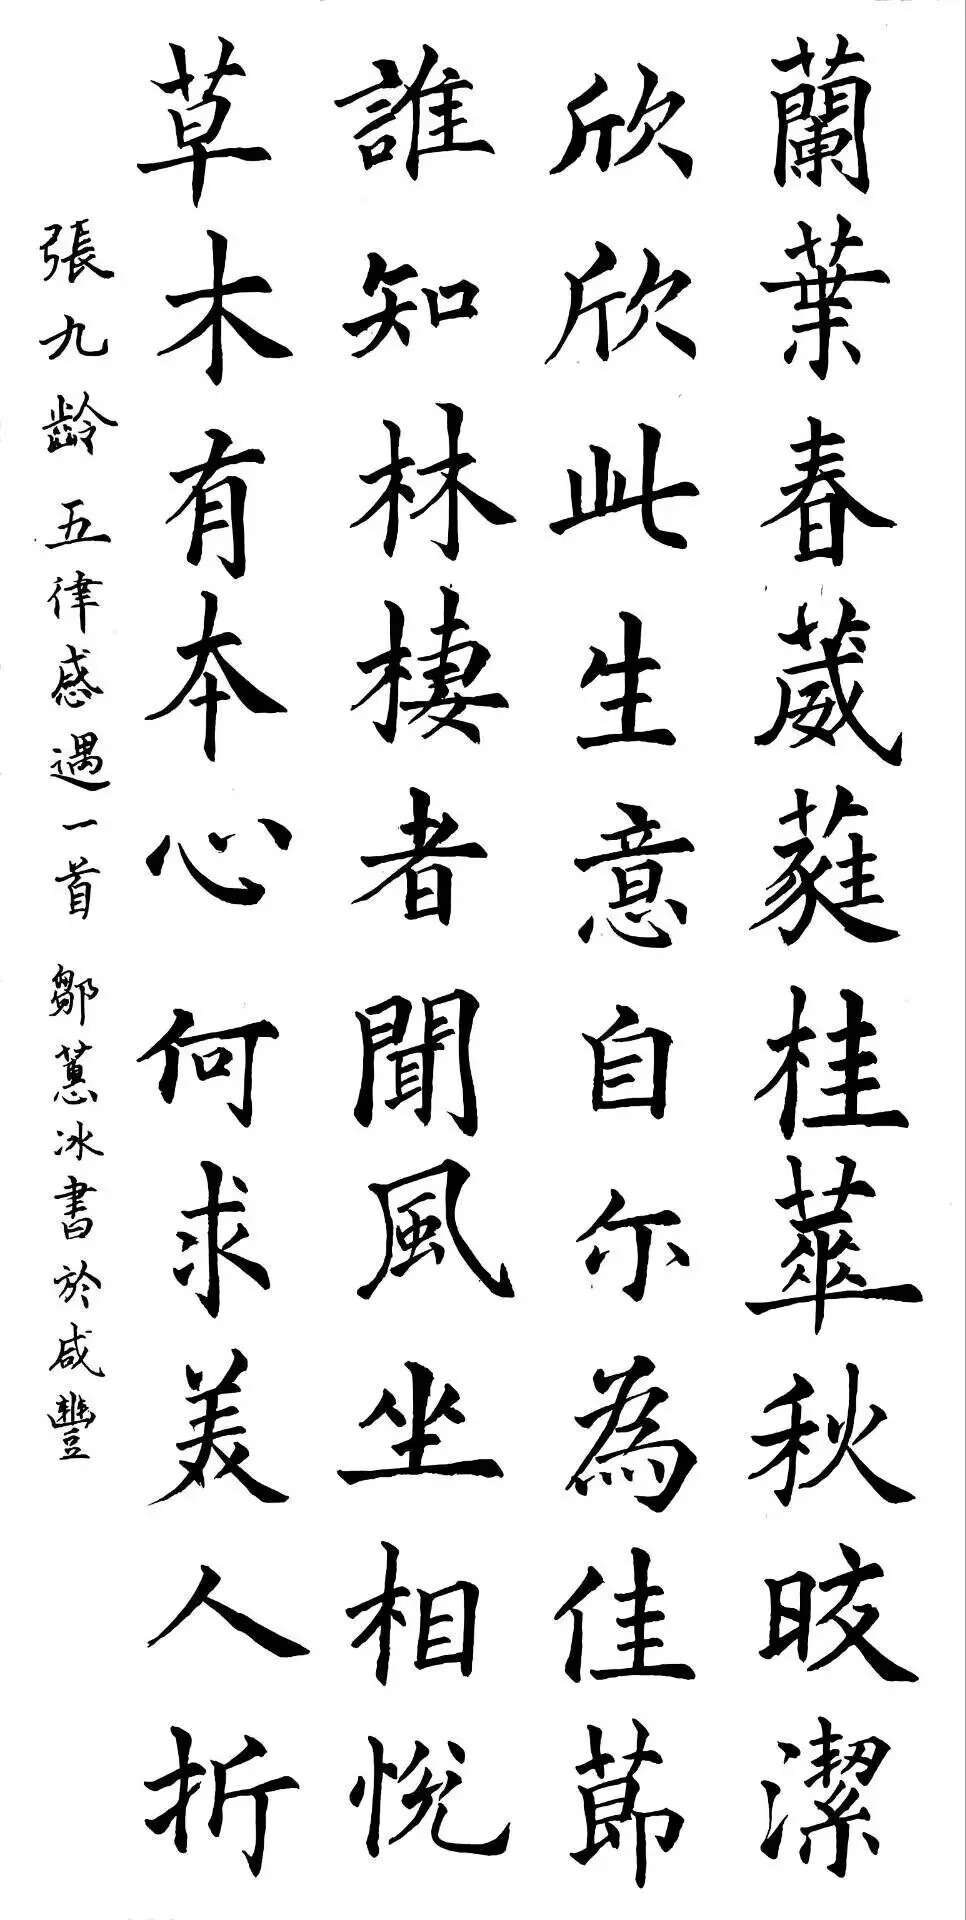 蘭葉春葳蕤桂華秋皎潔
欣欣此生意自尓為佳節
誰知林棲者聞風坐相悅
草木有本心何求美人折
張九齡 五律感遇一首 鄒蕙冰書於咸豐